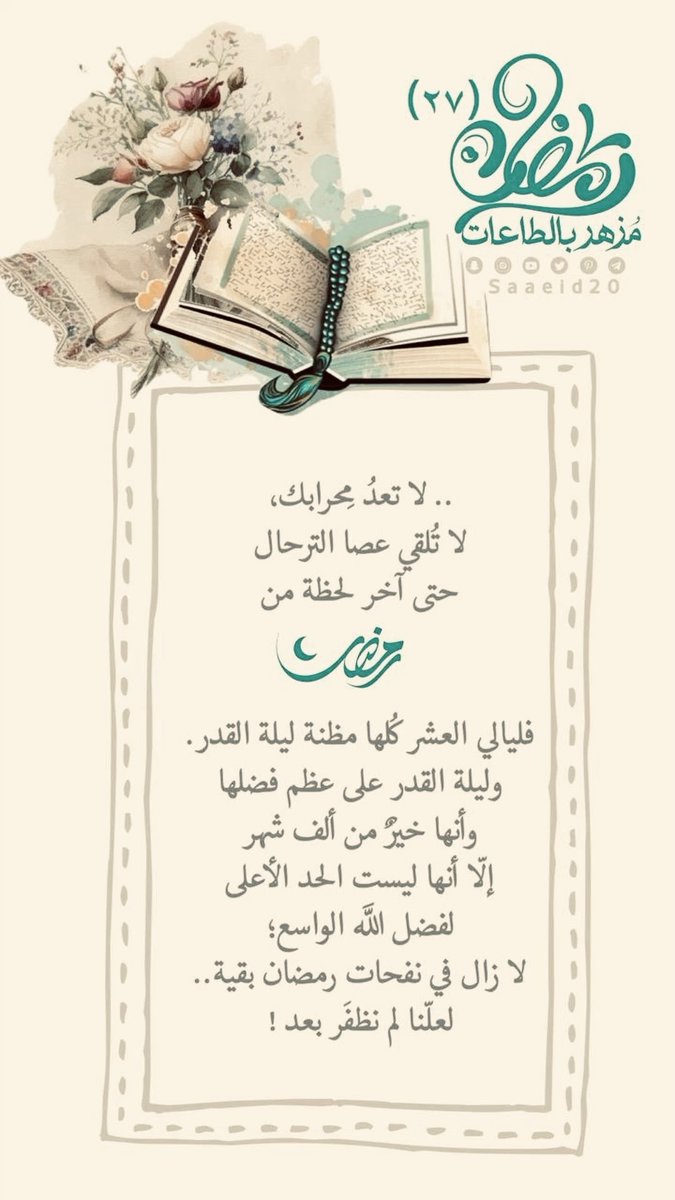 رمضان (٢٧)
مُزهر بالطاعات
Saaeid20
.. لا تعدُ مِحرابك،
لا تُلقي عصا الترحال
حتى آخر لحظة من
رمضان
فليالي العشر كُلها مظنة ليلة القدر.
وليلة القدر على عظم فضلها
وأنها خيرٌ من ألف شهر
إلّا أنها ليست الحد الأعلى
لفضل اللَّه الواسع؛
لا زال في نفحات رمضان بقية..
لعلّنا لم نظفَر بعد !